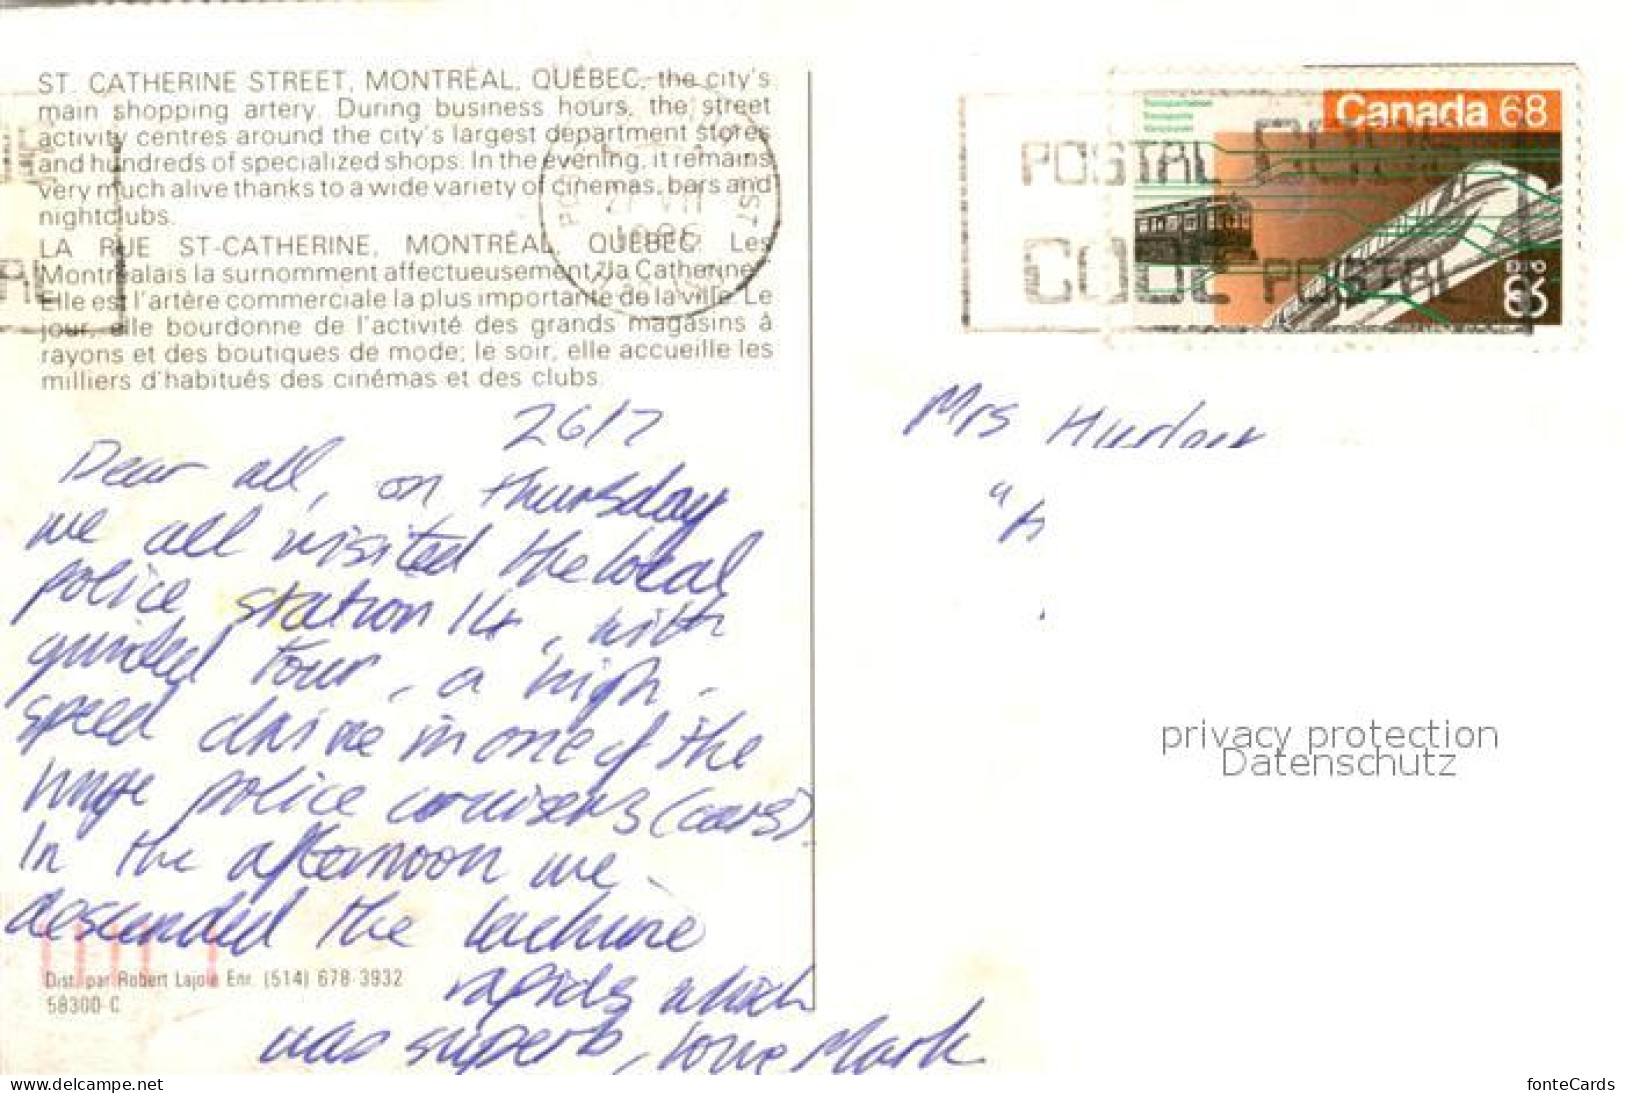 ST. CATHERINE STREET, MONTRÉAL, QUÉBEC, the city's
main shopping artery. During business hours, the street
activity centres around the city's largest department stores
and hundreds of specialized shops. In the evening, it remains
very much alive thanks to a wide variety of cinemas, bars and
nightclubs.
LA RUE ST-CATHERINE, MONTRÉAL, QUÉBEC. Les
Montréalais la surnomment affectueusement "la Catherine".
Elle est l'artère commerciale la plus importante de la ville. Le
jour, elle bourdonne de l'activité des grands magasins à
rayons et des boutiques de mode; le soir, elle accueille les
milliers d'habitués des cinémas et des clubs.
26/7
Dear all, on thursday
we all visited the local
police station 14, with
guided tour, a high-
speed drive in one of the
huge police cruisers (cars).
In the afternoon we
descended the lachine
rapids which
was superb, love Mark
Dist. par Robert Lajoie Enr. (514) 678-3932
58300-C
Canada 68
Transportation
Transports
Vancouver
EXPO
86
POSTAL CODE
CODE POSTAL
Mrs
privacy protection
Datenschutz
www.delcampe.net
fonteCards